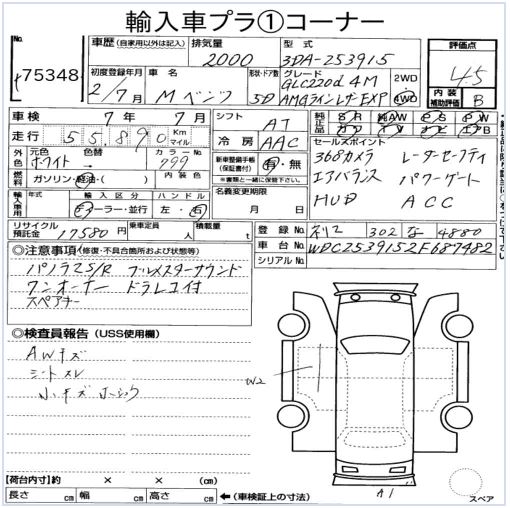 輸入車プラ①コーナー
No.
75348
車歴 (自家用以外は記入)
排気量
2000
型式
3DA-253915
評価点
4.5
内装
補助評価
B
初度登録年月
2/7月
車名
Mベンツ
形状・ドア数
5D
グレード
GLC220d 4M
AMGラインレザーEXP
2WD
4WD
車検
7年7月
シフト
AT
純正品
SR
AW
PS
PW
カワ
TV
ナビ
エアB
走行
55,890
Km
マイル
冷房
AAC
セールスポイント
360カメラ レーダーセーフティ
エアバランス パワーゲート
HUD ACC
外色
元色
ホワイト
色替
カラーNo.
799
内装色
燃料
ガソリン・軽油・( )
新車整備手帳
(保証書付)
有・無
※書類と一緒に保管下さい。
名義変更期限
月 日
輸入車用
年式
輸入区分
ディーラー・並行
ハンドル
左・右
リサイクル
預託金
17580円
乗車定員
人
積載量
t
登録No.
302
な
4880
車台No.
WDC2539152F687482
シリアルNo.
◎注意事項(修復・不具合箇所および状態等)
パノラマS/R ブルメスターサウンド
ワンオーナー ドラレコ付
スペアキー
◎検査員報告 (USS使用欄)
AWキズ
シートスレ
小キズ
W2
A1
【荷台内寸】約 × × (cm)
長さ cm 幅 cm 高さ cm
←(車検証上の寸法)
スペア